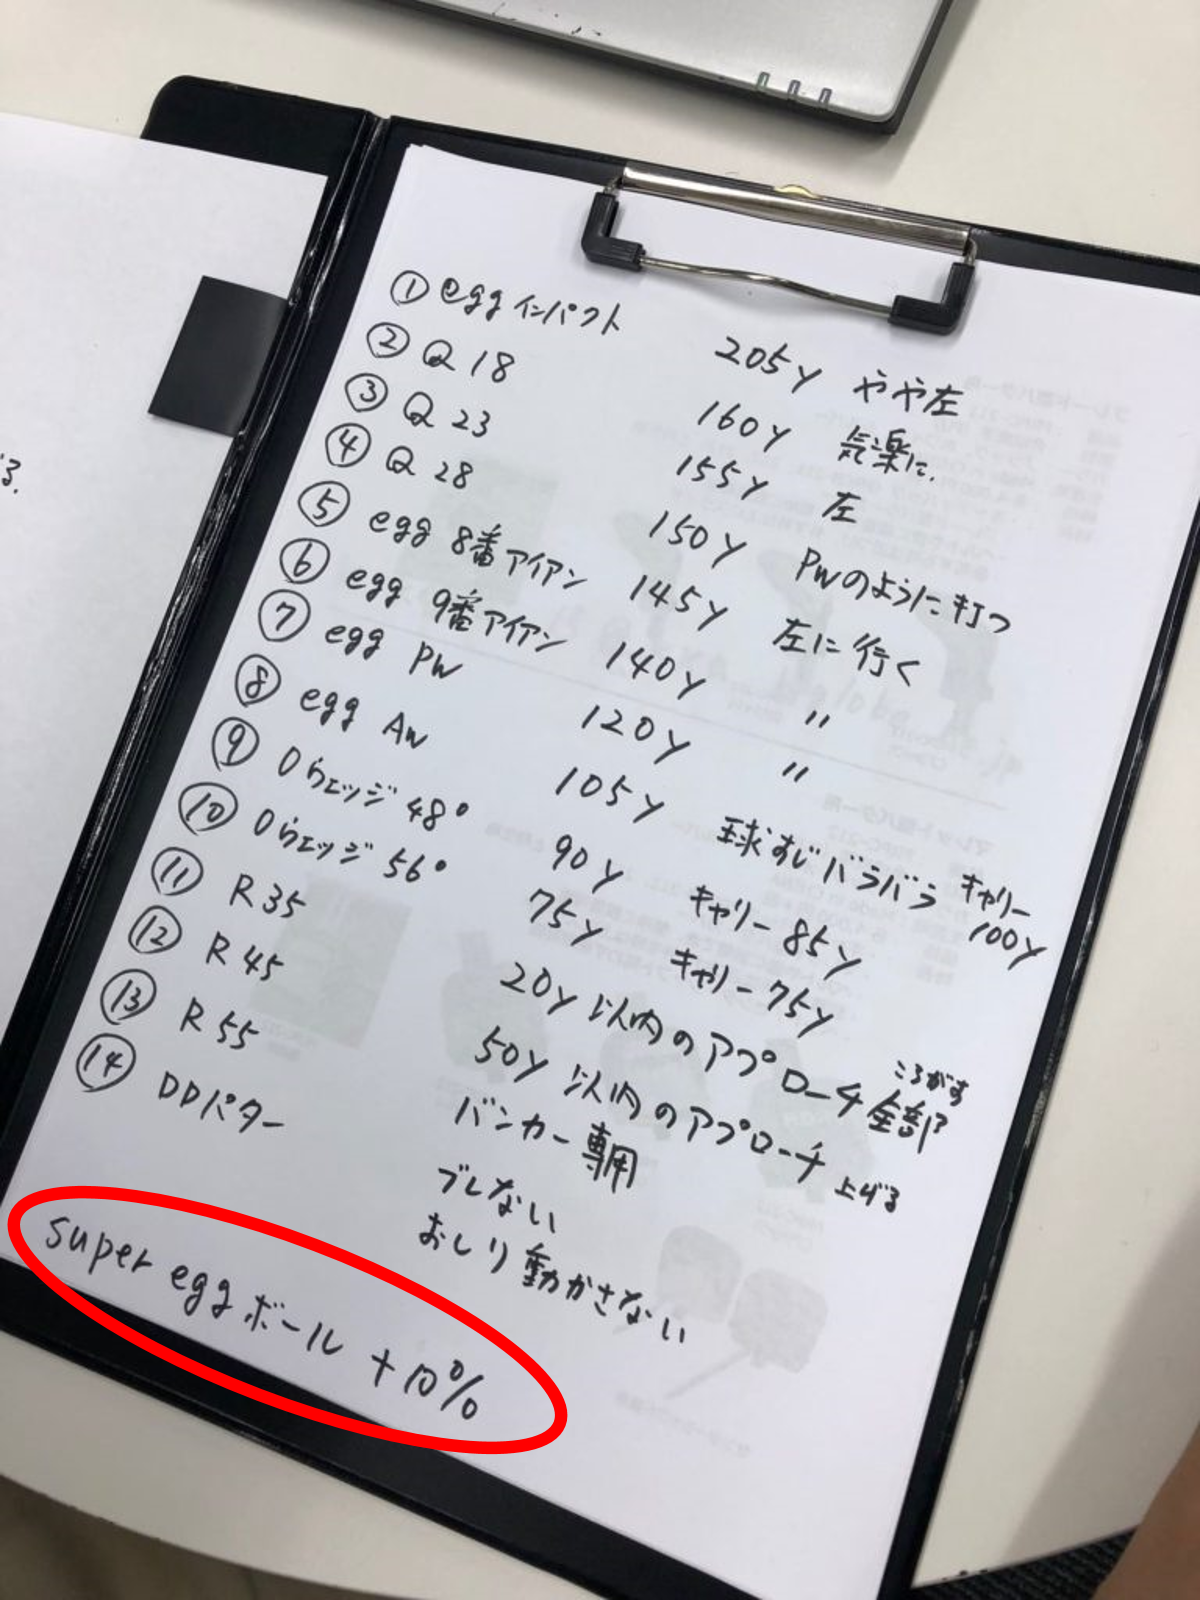 ① egg インパクト 205y やや左
② Q 18 160y 気楽に.
③ Q 23 155y 左
④ Q 28 150y PWのように打つ
⑤ egg 8番アイアン 145y 左に行く
⑥ egg 9番アイアン 140y 〃
⑦ egg PW 120y 〃
⑧ egg AW 105y 球すじバラバラ キャリー100y
⑨ 0ウェッジ 48° 90y キャリー 85y
⑩ 0ウェッジ 56° 75y キャリー 75y
⑪ R 35 20y 以内のアプローチ全部 ころがす
⑫ R 45 50y 以内のアプローチ 上げる
⑬ R 55 バンカー専用
⑭ DDパター ブレない
おしり動かさない
super egg ボール +10%
3.